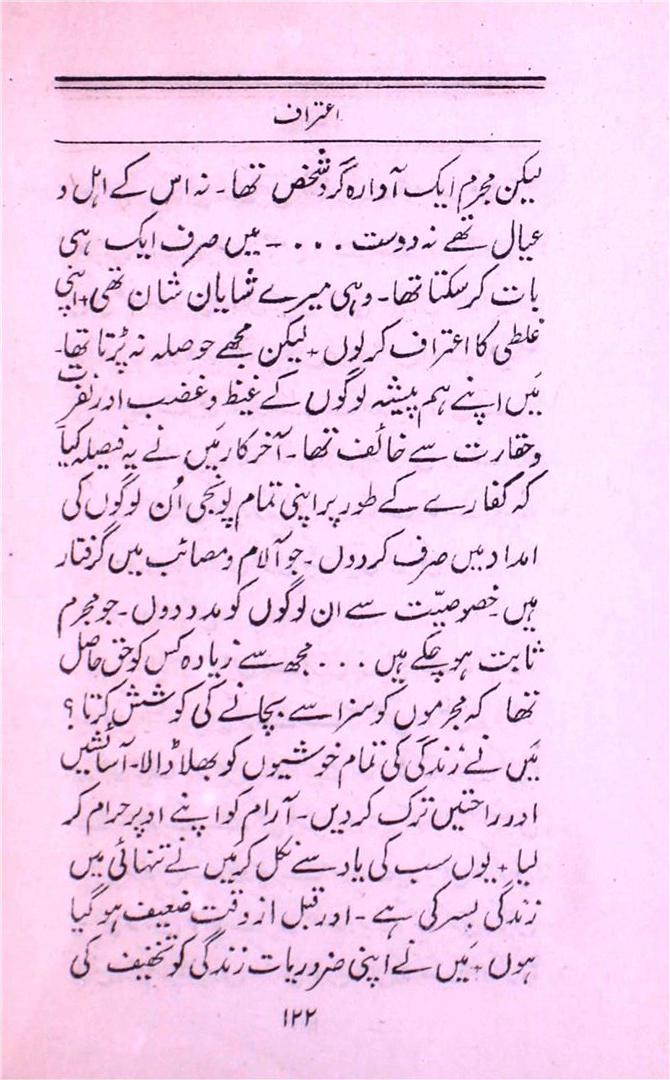 اعتراف
لیکن مجرم ایک آوارہ گرد شخص تھا۔ نہ اس کے اہل و
عیال تھے نہ دوست ... ۔ میں صرف ایک ہی
بات کر سکتا تھا۔ وہی میرے شایان شان تھی + اپنی
غلطی کا اعتراف کر لوں + لیکن مجھے حوصلہ نہ پڑتا تھا۔
میں اپنے ہم پیشہ لوگوں کے غیظ و غضب اور نفرت
و حقارت سے خائف تھا۔ آخر کار میں نے یہ فیصلہ کیا
کہ کفارے کے طور پر اپنی تمام پونجی اُن لوگوں کی
امداد میں صرف کر دوں۔ جو آلام و مصائب میں گرفتار
ہیں۔ خصوصیّت سے ان لوگوں کو مدد دوں۔ جو مجرم
ثابت ہو چکے ہیں ... مجھ سے زیادہ کس کو حق حاصل
تھا کہ مجرموں کو سزا سے بچانے کی کوشش کرتا ؟
میں نے زندگی کی تمام خوشیوں کو بھلا ڈالا۔ آسائشیں
اور راحتیں ترک کر دیں۔ آرام کو اپنے اوپر حرام کر
لیا + یوں سب کی یاد سے نکل کر میں نے تنہائی میں
زندگی بسر کی ہے ۔ اور قبل از وقت ضعیف ہو گیا
ہوں + میں نے اپنی ضروریات زندگی کو تخفیف کی
۱۲۲